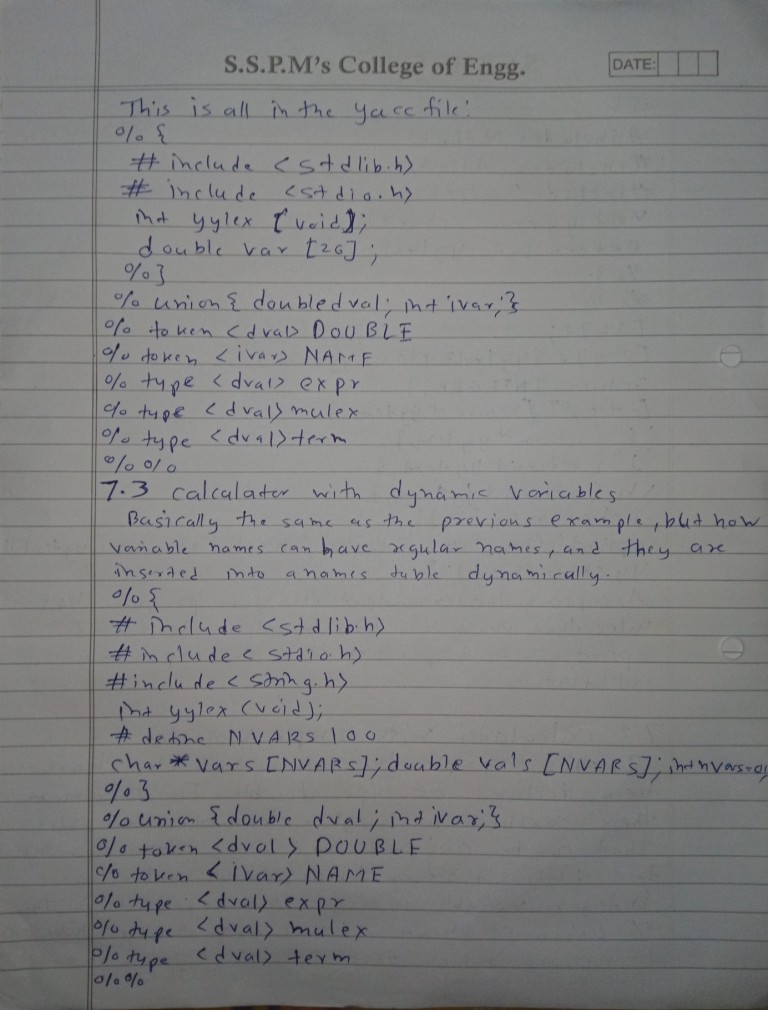 S.S.P.M's College of Engg.
DATE:
This is all in the yacc file:
%{
# include <stdlib.h>
# include <stdio.h>
int yylex [void];
double var [26];
%}
% union { double dval; int ivar; }
% token <dval> DOUBLE
% token <ivar> NAME
% type <dval> expr
% type <dval> mulex
% type <dval> term
%%
7.3 calcalator with dynamic variables
Basically the same as the previous example, but now
variable names can have regular names, and they are
inserted into a names table dynamically.
%{
# include <stdlib.h>
# include < stdio.h>
#include < string.h>
int yylex (void);
# define NVARS 100
char * vars [NVARS]; double vals [NVARS]; int nvars=0;
%}
% union { double dval; int ivar; }
% token <dval> DOUBLE
% token <ivar> NAME
% type <dval> expr
% type <dval> mulex
% type <dval> term
%%